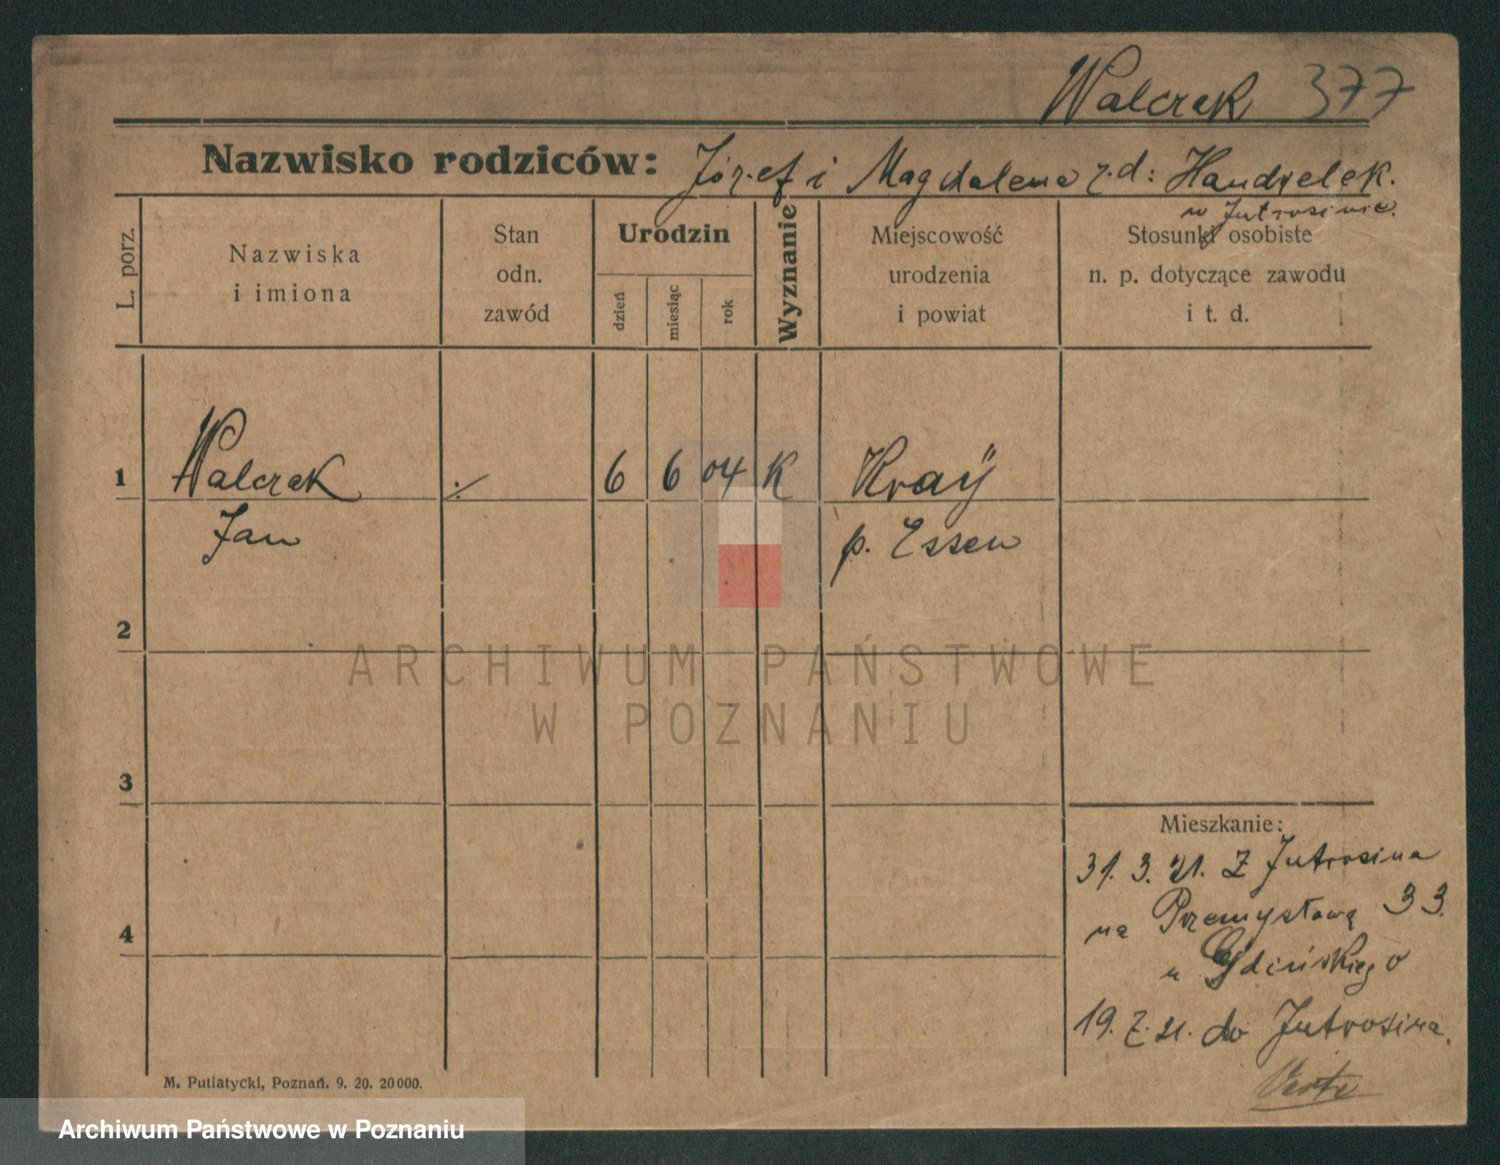 Walczak 377
Nazwisko rodziców: Józef i Magdalena z.d: Handzelek.
w Jutrosinie.
L. porz.
Nazwiska
i imiona
Stan
odn.
zawód
Urodzin
dzień
miesiąc
rok
Wyznanie
Miejscowość
urodzenia
i powiat
Stosunki osobiste
n. p. dotyczące zawodu
i t. d.
1 Walczak ./. 6 6 04 K Kray
Jan p. Essen
2
3
4
Mieszkanie:
31. 3. 21. Z Jutrosina
na Przemysłową 33.
u Gdińskiego
19. 7. 21. do Jutrosina.
Verte
M. Putiatycki, Poznań. 9. 20. 20000.
ARCHIWUM PAŃSTWOWE
W POZNANIU
Archiwum Państwowe w Poznaniu